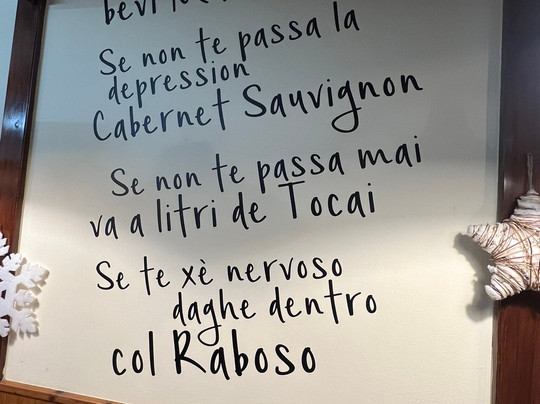 Se non te passa la
depression
Cabernet Sauvignon
Se non te passa mai
va a litri de Tocai
Se te xè nervoso
daghe dentro
col Raboso